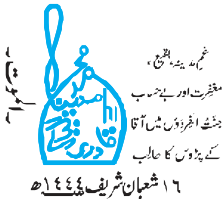 غمِ مدینہ، بقیع،
مغفرت اور بے حساب
جنّت الفردوس میں آقا
کے پڑوس کا طالب
۔الموت۔
١٦ شعبان شریف ١٤٤٤ھ